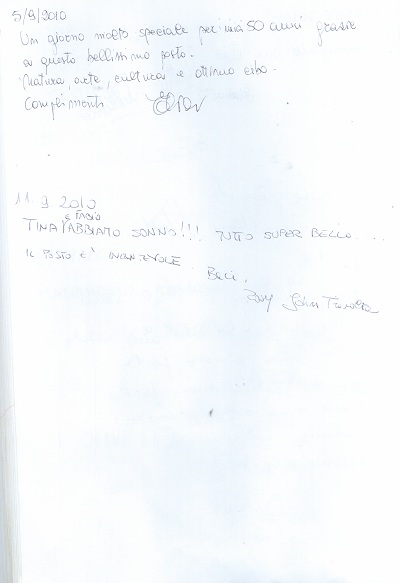 5/9/2010
Un giorno molto speciale per i miei 50 anni grazie
a questo bellissimo posto.
Natura, arte, cultura e ottimo cibo.
Complimenti
11.9.2010
e FABIO
TINA ABBIAMO SONNO!!! TUTTO SUPER BELLO...
IL POSTO E' INCANTEVOLE
Baci.
John